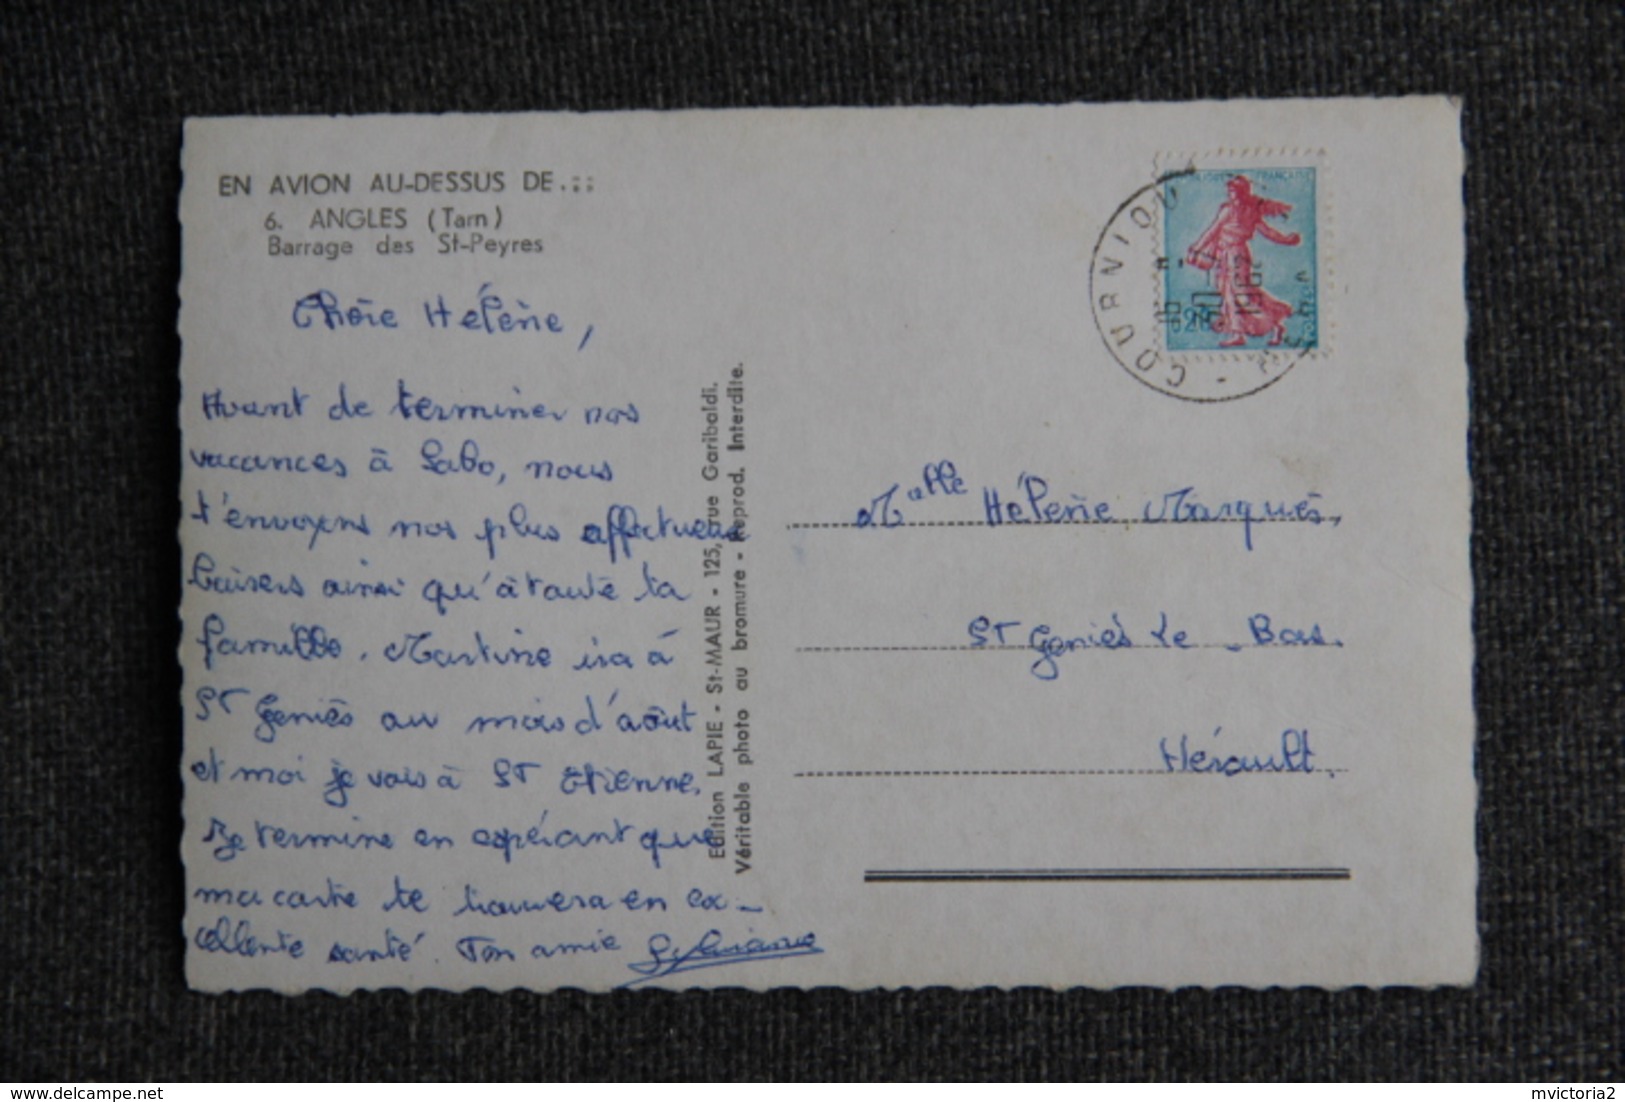 EN AVION AU-DESSUS DE.:;
6. ANGLES (Tarn)
Barrage des St-Peyres
Chère Hélène,
Avant de terminer nos
vacances à Sabo, nous
t'envoyons nos plus affectueux
baisers ainsi qu'à toute ta
famille. Martine ira à
St Geniès au mois d'août
et moi je vais à St Etienne.
Je termine en espérant que
ma carte te trouvera en ex-
cellente santé. Ton amie Sylviane
Edition LAPIE - St-MAUR - 125, rue Garibaldi.
Véritable photo au bromure - Reprod. Interdite.
COURNIOU
HERAULT
0,20
Melle Hélène Marquès,
St Geniès le - Bas.
Hérault.
mvictoria2